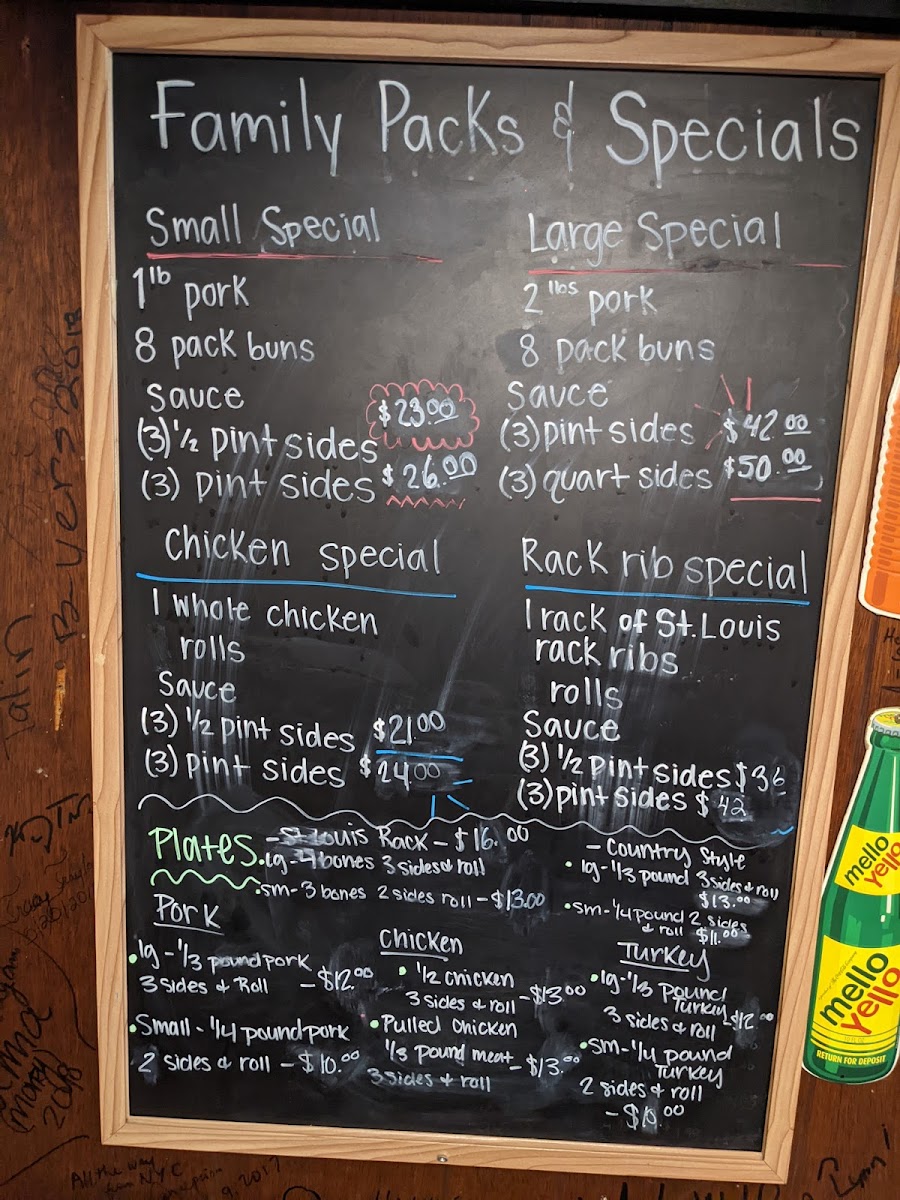 Family Packs & Specials
Small Special
1 lb pork
8 pack buns
Sauce
(3) 1/2 pint sides $23.00
(3) pint sides $26.00
Large Special
2 lbs pork
8 pack buns
Sauce
(3) pint sides $42.00
(3) quart sides $50.00
Chicken special
1 whole chicken
rolls
Sauce
(3) 1/2 pint sides $21.00
(3) pint sides $24.00
Rack rib special
1 rack of St. Louis
rack ribs
rolls
Sauce
(3) 1/2 pint sides $36
(3) pint sides $42
Plates
- St Louis Rack - $16.00
• lg - 4 bones 3 sides & roll
• sm - 3 bones 2 sides roll - $13.00
- Country Style
• lg - 1/3 pound 3 sides & roll
$13.00
• sm - 1/4 pound 2 sides
& roll $11.00
Pork
• lg - 1/3 pound pork
3 sides & Roll - $12.00
• Small - 1/4 pound pork
2 sides & roll - $10.00
Chicken
• 1/2 chicken
3 sides & roll - $13.00
• Pulled Chicken
1/3 pound meat - $13.00
3 sides & roll
Turkey
• lg - 1/3 pound
Turkey - $12.00
3 sides & roll
• sm - 1/4 pound
Turkey
2 sides & roll
- $10.00
mello
yello
mello
yello
RETURN FOR DEPOSIT
Byers 2018
All the way
from NYC
9.2017